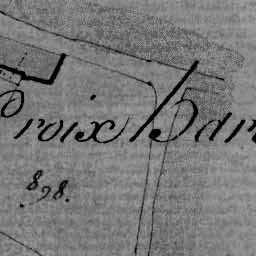 Croix Bar
898.